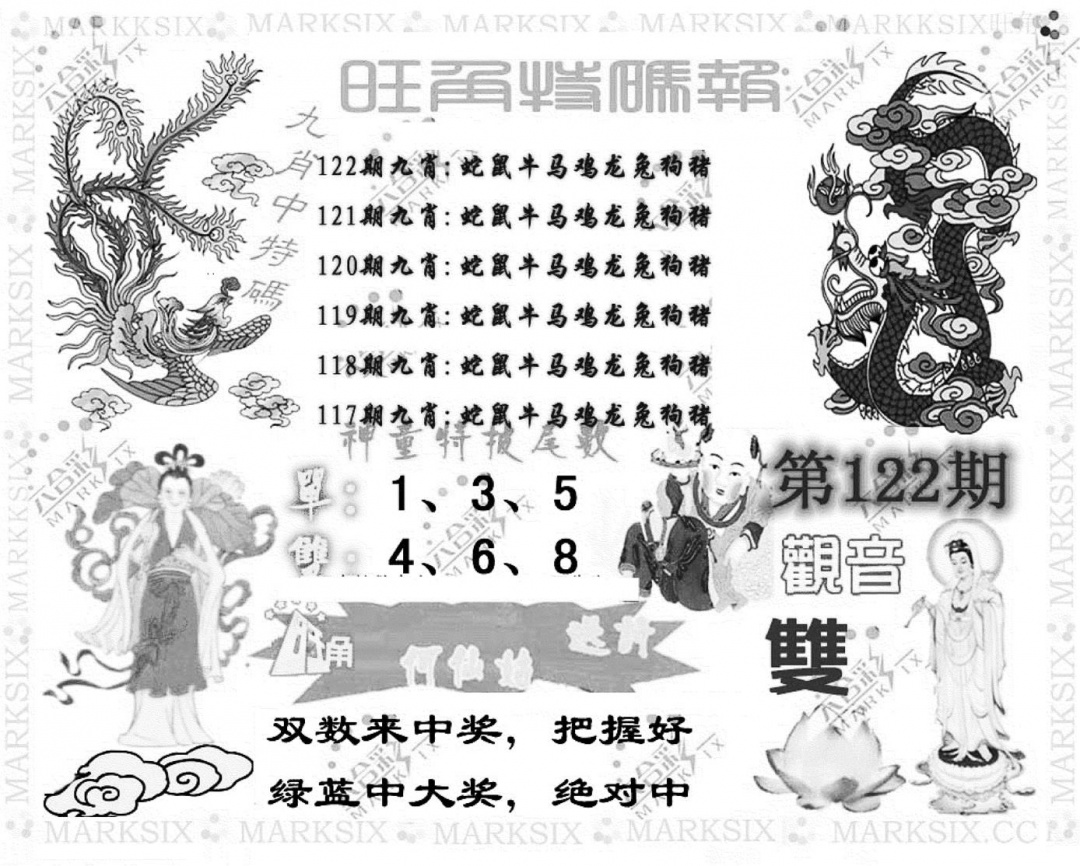 MARKSIX MARKKSIX MARKSIX MARKSIX MARKKSIX
旺角特碼報
九肖中特碼
122期九肖: 蛇鼠牛马鸡龙兔狗猪
121期九肖: 蛇鼠牛马鸡龙兔狗猪
120期九肖: 蛇鼠牛马鸡龙兔狗猪
119期九肖: 蛇鼠牛马鸡龙兔狗猪
118期九肖: 蛇鼠牛马鸡龙兔狗猪
117期九肖: 蛇鼠牛马鸡龙兔狗猪
神童特报尾数
單: 1、3、5
雙: 4、6、8
第122期
觀音
雙
何仙姑
双数来中奖，把握好
绿蓝中大奖，绝对中
MARKSIX MARKSIX MARKSIX MARKSIX MARKSIX.CC